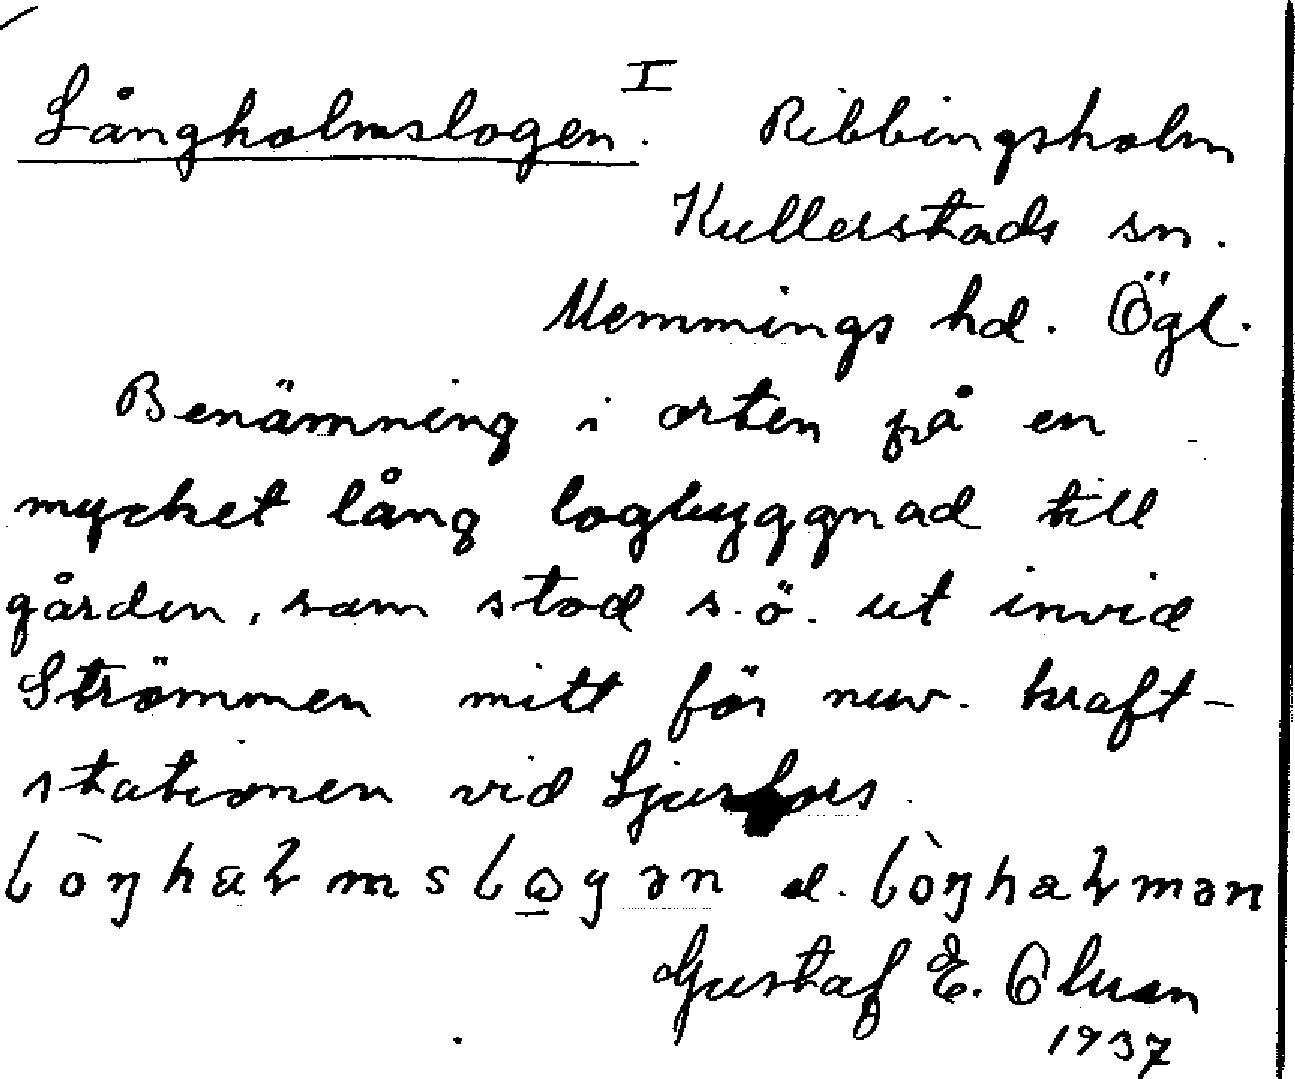 Långholmslogen. I Ribbingsholm
Kullerstads sn.
Memmings hd. Ögl.
Benämning i orten på en
mycket lång logbyggnad till
gården, som stod s.ö. ut invid
Strömmen mitt för nuv. kraft-
stationen vid Ljusfors.
el.
Gustaf E. Olsson
1937